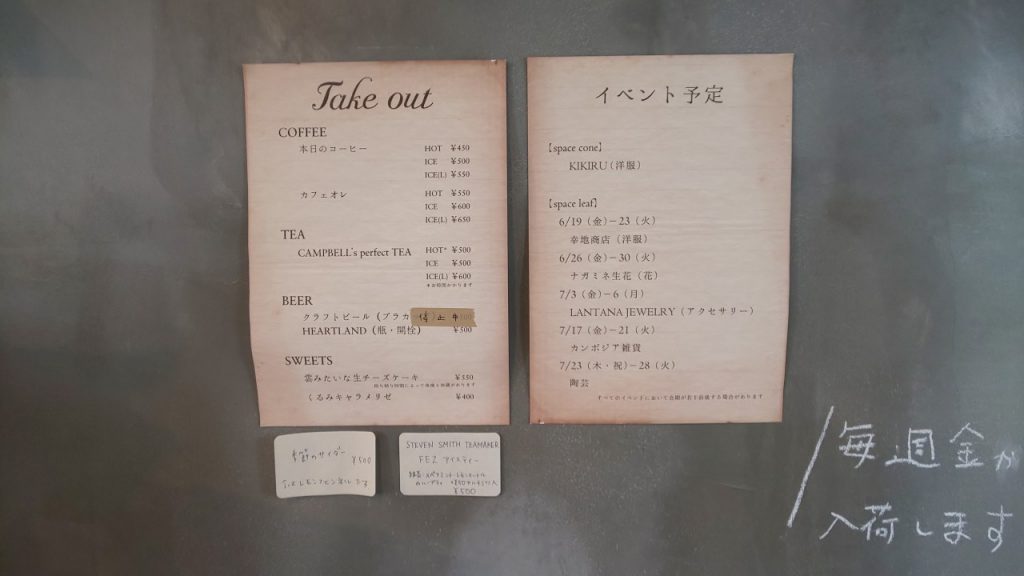 Take out
COFFEE
本日のコーヒー HOT ¥450
ICE ¥500
ICE(L) ¥550
カフェオレ HOT ¥550
ICE ¥600
ICE(L) ¥650
TEA
CAMPBELL's perfect TEA HOT* ¥500
ICE ¥500
ICE(L) ¥600
*お時間かかります
BEER
クラフトビール(プラカ 停止中
HEARTLAND(瓶・開栓) ¥500
SWEETS
雲みたいな生チーズケーキ ¥550
くるみキャラメリゼ ¥400
季節のサイダー
¥500
STEVEN SMITH TEAMAKER
FEZ アイスティー
¥500
イベント予定
【space cone】
KIKIRU(洋服)
【space leaf】
6/19(金)–23(火)
幸地商店(洋服)
6/26(金)–30(火)
ナガミネ生花(花)
7/3(金)–6(月)
LANTANA JEWELRY(アクセサリー)
7/17(金)–21(火)
カンボジア雑貨
7/23(木・祝)–28(火)
陶芸
すべてのイベントにおいて会期が若干前後する場合があります
毎週金か
入荷します